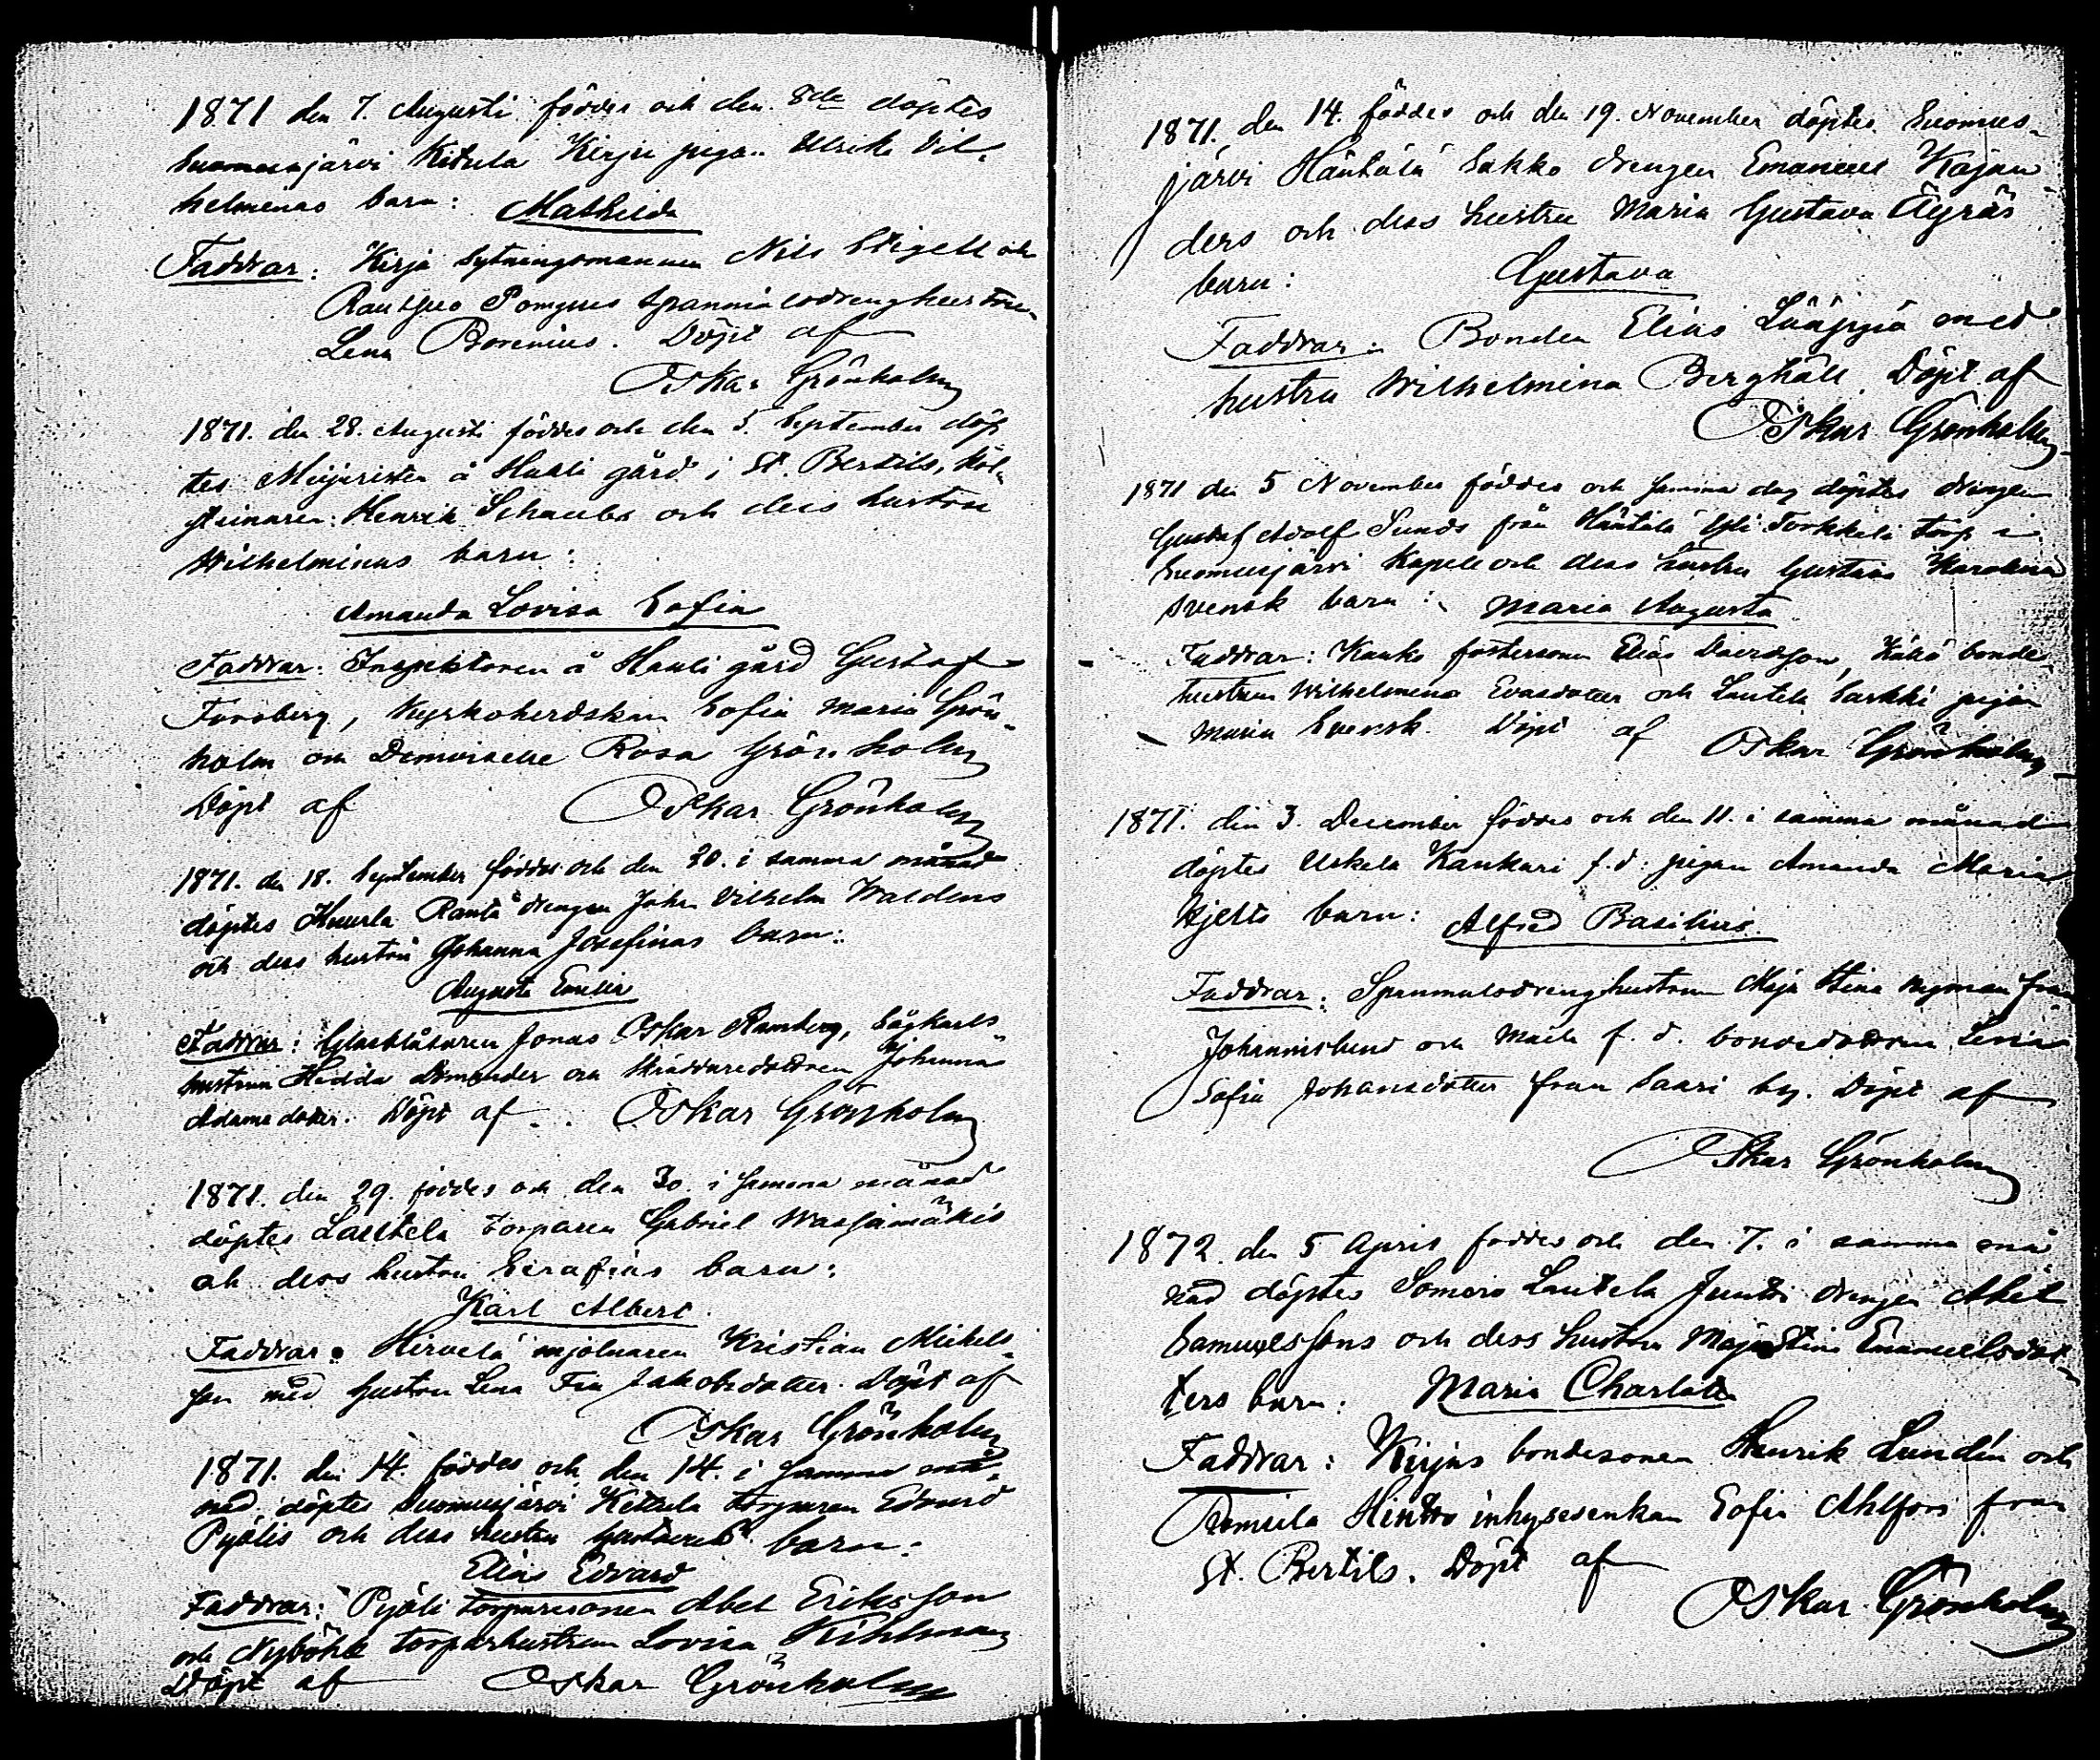 1871 den 7. Augusti föddes och den 8de döptes
Suomusjärvi Kitula Kirju pigan Ulrika Vil-
helminas barn: Mathilda
Faddrar: Kirja Sytningsmannen Nils Stigell och
Spannmålsdrenghustrun
Lena Borenius. Döpt af
Oskar Grönholm
1871. den 28. Augusti föddes och den 5. September döp
tes Mejeristen å Haali gård i St. Bertils, Hol-
steinaren Henrik och dess hustru
Wilhelminas barn:
Amanda Lovisa Sofia
Faddrar: Inspektoren å Haali gård Gustaf
Forsberg, Kyrkoherdskan Sofia Maria Grön-
holm och Demoiselle Rosa Grönholm
Döpt af Oskar Grönholm
1871. den 18. September föddes och den 20. i samma månad
döptes Kuurla Ranta drengen Johan Vilhelm Waldens
och dess hustru Johanna Josefinas barn:
Augusta Emilia
Faddrar: Glasblåsaren Jonas Oskar Ramberg, Sågkarls-
hustrun Hedda och Skräddaredottren Johanna
Adamsdotter. Döpt af Oskar Grönholm
1871. den 29. föddes och den 30. i samma månad
döptes Lautela Torparen Gabriel Wassamäkis
och dess hustru Serafias barn:
Karl Albert.
Faddrar: Hirvelä mjölnaren Kristian Mickels-
son med hustru Lena Jakobsdotter. Döpt af
Oskar Grönholm
1871. den 14. föddes och den 14. i samma må-
nad döptes Suomusjärvi Kettula torparen Edvard
Pyölis och dess hustru barn:
Elias Edvard
Faddrar: Pyöli torparesonen Abel Eriksson
och Nyböhle torparhustrun Lovisa Kihlman
Döpt af Oskar Grönholm
1871. den 14. föddes och den 19. November döptes Suomus-
järvi Häntälä Sakko drengen Emanuel Kajan
ders och dess hustru Maria Gustava Äyräs
barn: Gustava
Faddrar: Bonden Elias Lääpyiä med
hustru Wilhelmina Berghäll. Döpt af
Oskar Grönholm
1871 den 5 November föddes och samma dag döptes drengen
Gustaf Adolf Sunds från Häntälä Yli Torkkeli torp i
Suomusjärvi Kapell och dess hustru Gustava Karolina
Svensk barn: Maria Augusta
Faddrar: Kauko fostersonen Elias Davidsson, bonde-
hustrun Wilhelmina Evasdotter och Lautela Sarkki pigan
Maria Svensk. Döpt af Oskar Grönholm
1871. den 3. December föddes och den 11. i samma månad
döptes Uskela Kankari f.d. pigan Amanda Maria
barn: Alfred Basilius.
Faddrar: Spanmålsdrenghustrun Maja Stina Nyman från
Johannislund och f. d. bondedottren Lena
Sofia Johansdotter från Saari by. Döpt af
Oskar Grönholm
1872 den 5 April föddes och den 7. i samma må
nad döptes Somero Lautela Juntti drengen Abel
Samuelssons och dess hustru Maja Stina Emanuelsdot-
ters barn: Maria Charlotta
Faddrar: Kirjas bondesonen Henrik Lundén och
inhysesenkan Sofia Ahlfors från
St. Bertils. Döpt af
Oskar Grönholm